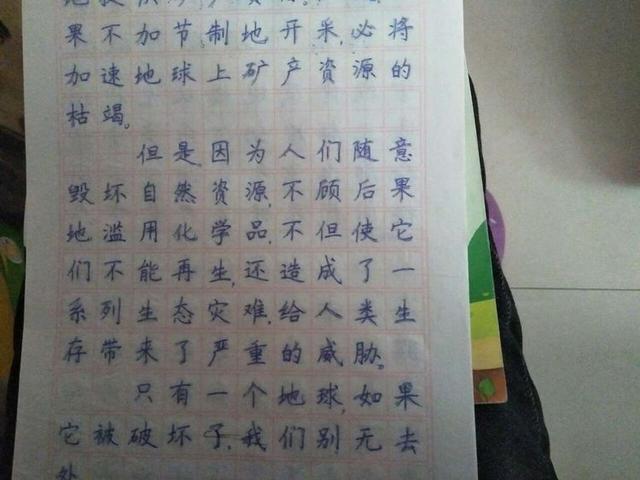 果不加节制地开采,必将
加速地球上矿产资源的
枯竭。
但是,因为人们随意
毁坏自然资源,不顾后果
地滥用化学品,不但使它
们不能再生,还造成了一
系列生态灾难,给人类生
存带来了严重的威胁。
只有一个地球,如果
它被破坏了,我们别无去
处